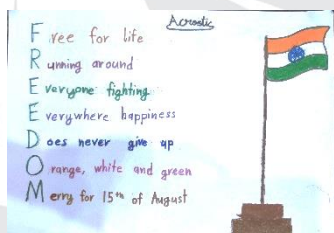 Acrostic
Free for life
Running around
Everyone fighting
Everywhere happiness
Does never give up
Orange, white and green
Merry for 15th of August